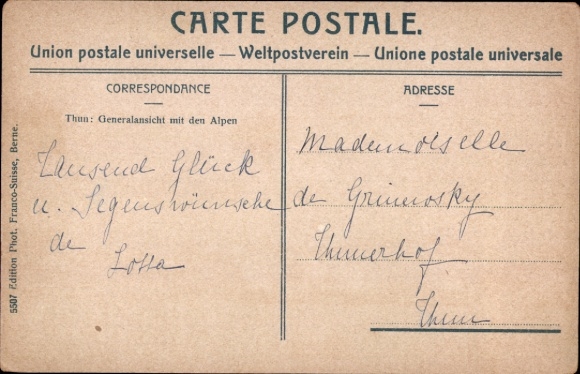 CARTE POSTALE.
Union postale universelle — Weltpostverein — Unione postale universale
CORRESPONDANCE
Thun: Generalansicht mit den Alpen
Tausend Glück
u. Segenswünsche
de
Lotta
ADRESSE
Mademoiselle
de Grimosky
Thunerhof
Thun
5507 Edition Phot. Franco-Suisse, Berne.